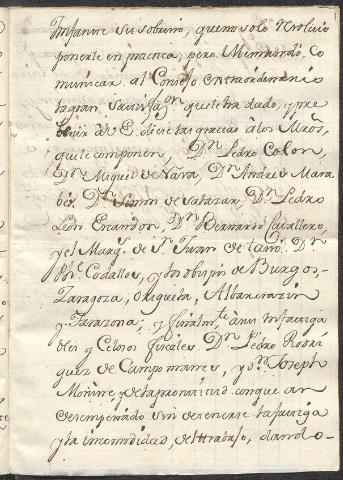 Infante su sobrino, que no solo resolvio
ponerle en practica, pero Me mandó co
municar al Consejo extraordinario
la gran satisfaᶜⁿ que le ha dado, y pre
venir à V.E. dè las gracias à los Mrõs
que le componen, Dⁿ Pedro Colon,
Dⁿ Miguel de Nava, Dⁿ Andres Mara
ber, Dⁿ Simon de Dⁿ Pedro
Leon Escandon, Dⁿ Bernardo Cavallero,
y el Marqˢ de Sⁿ Juan de tasó, Dⁿ
Phᵉ Codallos, y Obispos de Burgos,
Zaragoza, Origuela, Albarracin
y Tarazona; y finalmᵗᵉ à sus infatiga
bles y Celosos fiscales Dⁿ Pedro Rodri
guez de Campomanes, y Dⁿ Joseph
Moñino, y de la prontitud con que an
desempeñado sin detenerse la fatiga
y la incomodidad, del trabajo, dando-